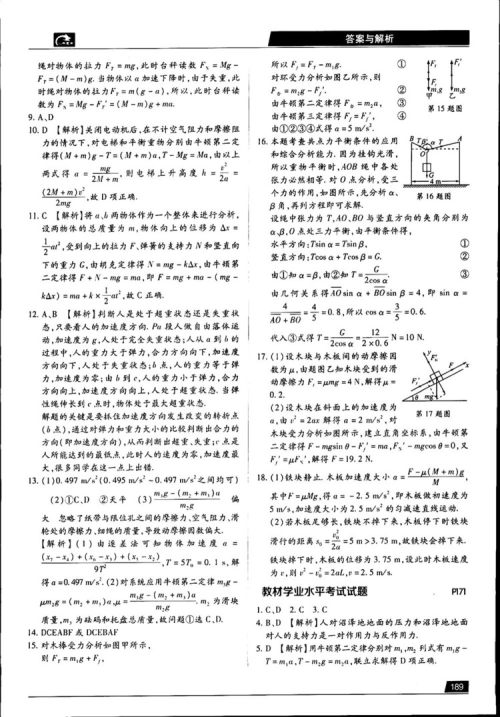 答案与解析
绳对物体的拉力 F_T = mg,此时台秤读数 F_N = Mg -
F_T = (M - m)g. 当物体以 a 加速下降时,由于失重,此
时绳对物体的拉力 F_T = m(g - a),所以,此时台秤读
数为 F_N' = Mg - F_T' = (M - m)g + ma.
9. A、D
10. D 【解析】关闭电动机后,在不计空气阻力和摩擦阻
力的情况下,对电梯和平衡重物分别由牛顿第二定
律得(M + m)g - T = (M + m)a,T - Mg = Ma,由以上
两式得 a = mg/(2M + m),则电梯上升高度 h = v²/2a =
(2M + m)v²/2mg,故 D 项正确.
11. C 【解析】将 a、b 两物体作为一个整体来进行分析,
设两物体的总质量为 m,物体向上的位移为 Δx =
1/2 at²,受到向上的拉力 F、弹簧的支持力 N 和竖直向
下的重力 G,由胡克定律得 N = mg - kΔx,由牛顿第
二定律得 F + N - mg = ma,即 F = mg + ma - (mg -
kΔx) = ma + k × 1/2 at²,故 C 正确.
12. A、B 【解析】判断人是处于超重状态还是失重状
态,只要看人的加速度方向. Pa 段人做自由落体运
动,加速度为 g,人处于完全失重状态;人从 a 到 b 的
过程中,人的重力大于弹力,合力方向向下,加速度
方向向下,人处于失重状态;b 点,人的重力等于弹
力,加速度为零;由 b 到 c,人的重力小于弹力,合力
方向向上,加速度方向向上,人处于超重状态. 当弹
性绳伸长到 c 点时,物体处于最大超重状态.
解题的关键是要抓住加速度方向发生改变的转折点
(b 点),通过对弹力和重力大小的比较判断出合力的
方向(即加速度方向),从而判断出超重、失重;c 点是
人所能达到的最低点,此时人的速度为零,加速度最
大,很多同学在这一点上出错.
13. (1)0.497 m/s²(0.495 m/s² ~ 0.497 m/s² 均可)
(2)①C、D ②天平 (3) [m₃g - (m₂ + m₃)a]/m₂g 偏
大 忽略了纸带与限位孔之间的摩擦力、空气阻力、滑
轮处的摩擦力、细绳的质量,导致动摩擦因数偏大.
【解析】(1)由逐差法可知物体加速度 a =
[(x₇ - x₄) + (x₈ - x₅) + (x₁ - x₂)]/9T²,T = 5T₀ = 0.1 s,解
得 a = 0.497 m/s². (2)对系统应用牛顿第二定律 m₃g -
μm₂g = (m₂ + m₃)a,μ = [m₃g - (m₂ + m₃)a]/m₂g. m₂ 为滑块
质量,m₃ 为砝码和托盘总质量,故问题①选 C、D.
14. DCEABF 或 DCEBAF
15. 对木棒受力分析如图甲所示,
则 F_T = m₁g + F_f,
所以 F_f = F_T - m₁g. ①
对环受力分析如图乙所示,则
F_合 = m₂g - F_f', ②
由牛顿第二定律得 F_合 = m₂a, ③
由牛顿第三定律得 F_f = F_f', ④
由①②③④式得 a = 5 m/s².
甲 乙
第 15 题图
16. 本题考查共点力平衡条件的应用
和综合分析能力. 因为挂钩光滑,
所以重物平衡时,AOB 绳中各处
张力必然相等. 对 O 点分析,受三
个力的作用,如图所示,先分析 α、
β 角,再列方程即可求解.
4 m
第 16 题图
设绳中张力为 T,AO、BO 与竖直方向的夹角分别为
α、β,O 点处三力平衡,由平衡条件得,
水平方向:Tsin α = Tsin β, ①
竖直方向:Tcos α + Tcos β = G. ②
由①知 α = β,由②知 T = G/2cos α, ③
由几何关系得 AO sin α + BO sin β = 4,即 sin α =
4/(AO + BO) = 4/5 = 0.8,所以 cos α = 0.6.
代入③式得 T = G/2cos α = 12/(2 × 0.6) N = 10 N.
17. (1)设木块与木板间的动摩擦因
数为 μ,由题图乙知木块受到的滑
动摩擦力 F_f = μmg = 4 N,解得 μ =
0.2.
(2)设木块在斜面上的加速度为
a,由 v² = 2ax 解得 a = 2 m/s²,对
第 17 题图
木块受力分析如图所示,建立直角坐标系,由牛顿第
二定律得 F - mgsin θ - F_f' = ma,F_N' - mgcos θ = 0,又
F_f' = μF_N',解得 F = 19.2 N.
18. (1)铁块静止. 木板加速度大小 a = [F - μ(M + m)g]/M,
其中 F = μMg,得 a = -2.5 m/s²,即木板做初速度为
5 m/s,加速度大小为 2.5 m/s² 的匀减速直线运动.
(2)若木板足够长,铁块不掉下来,木板停下时铁块
滑行的距离 s₀ = v₀²/2a = 5 m > 3.75 m,故铁块会掉下来.
铁块掉下时,木板的位移为 3.75 m,设此时木板速度
为 v,则 v² - v₀² = 2aL,v = 2.5 m/s.
教材学业水平考试试题 P171
1. C、D 2. C 3. C
4. B、D 【解析】人对沼泽地地面的压力和沼泽地地面
对人的支持力是一对作用力与反作用力.
5. D 【解析】用牛顿第二定律分别对 m₁、m₂ 列式有 m₁g -
T = m₁a,T - m₂g = m₂a,联立求解得 D 项正确.
189